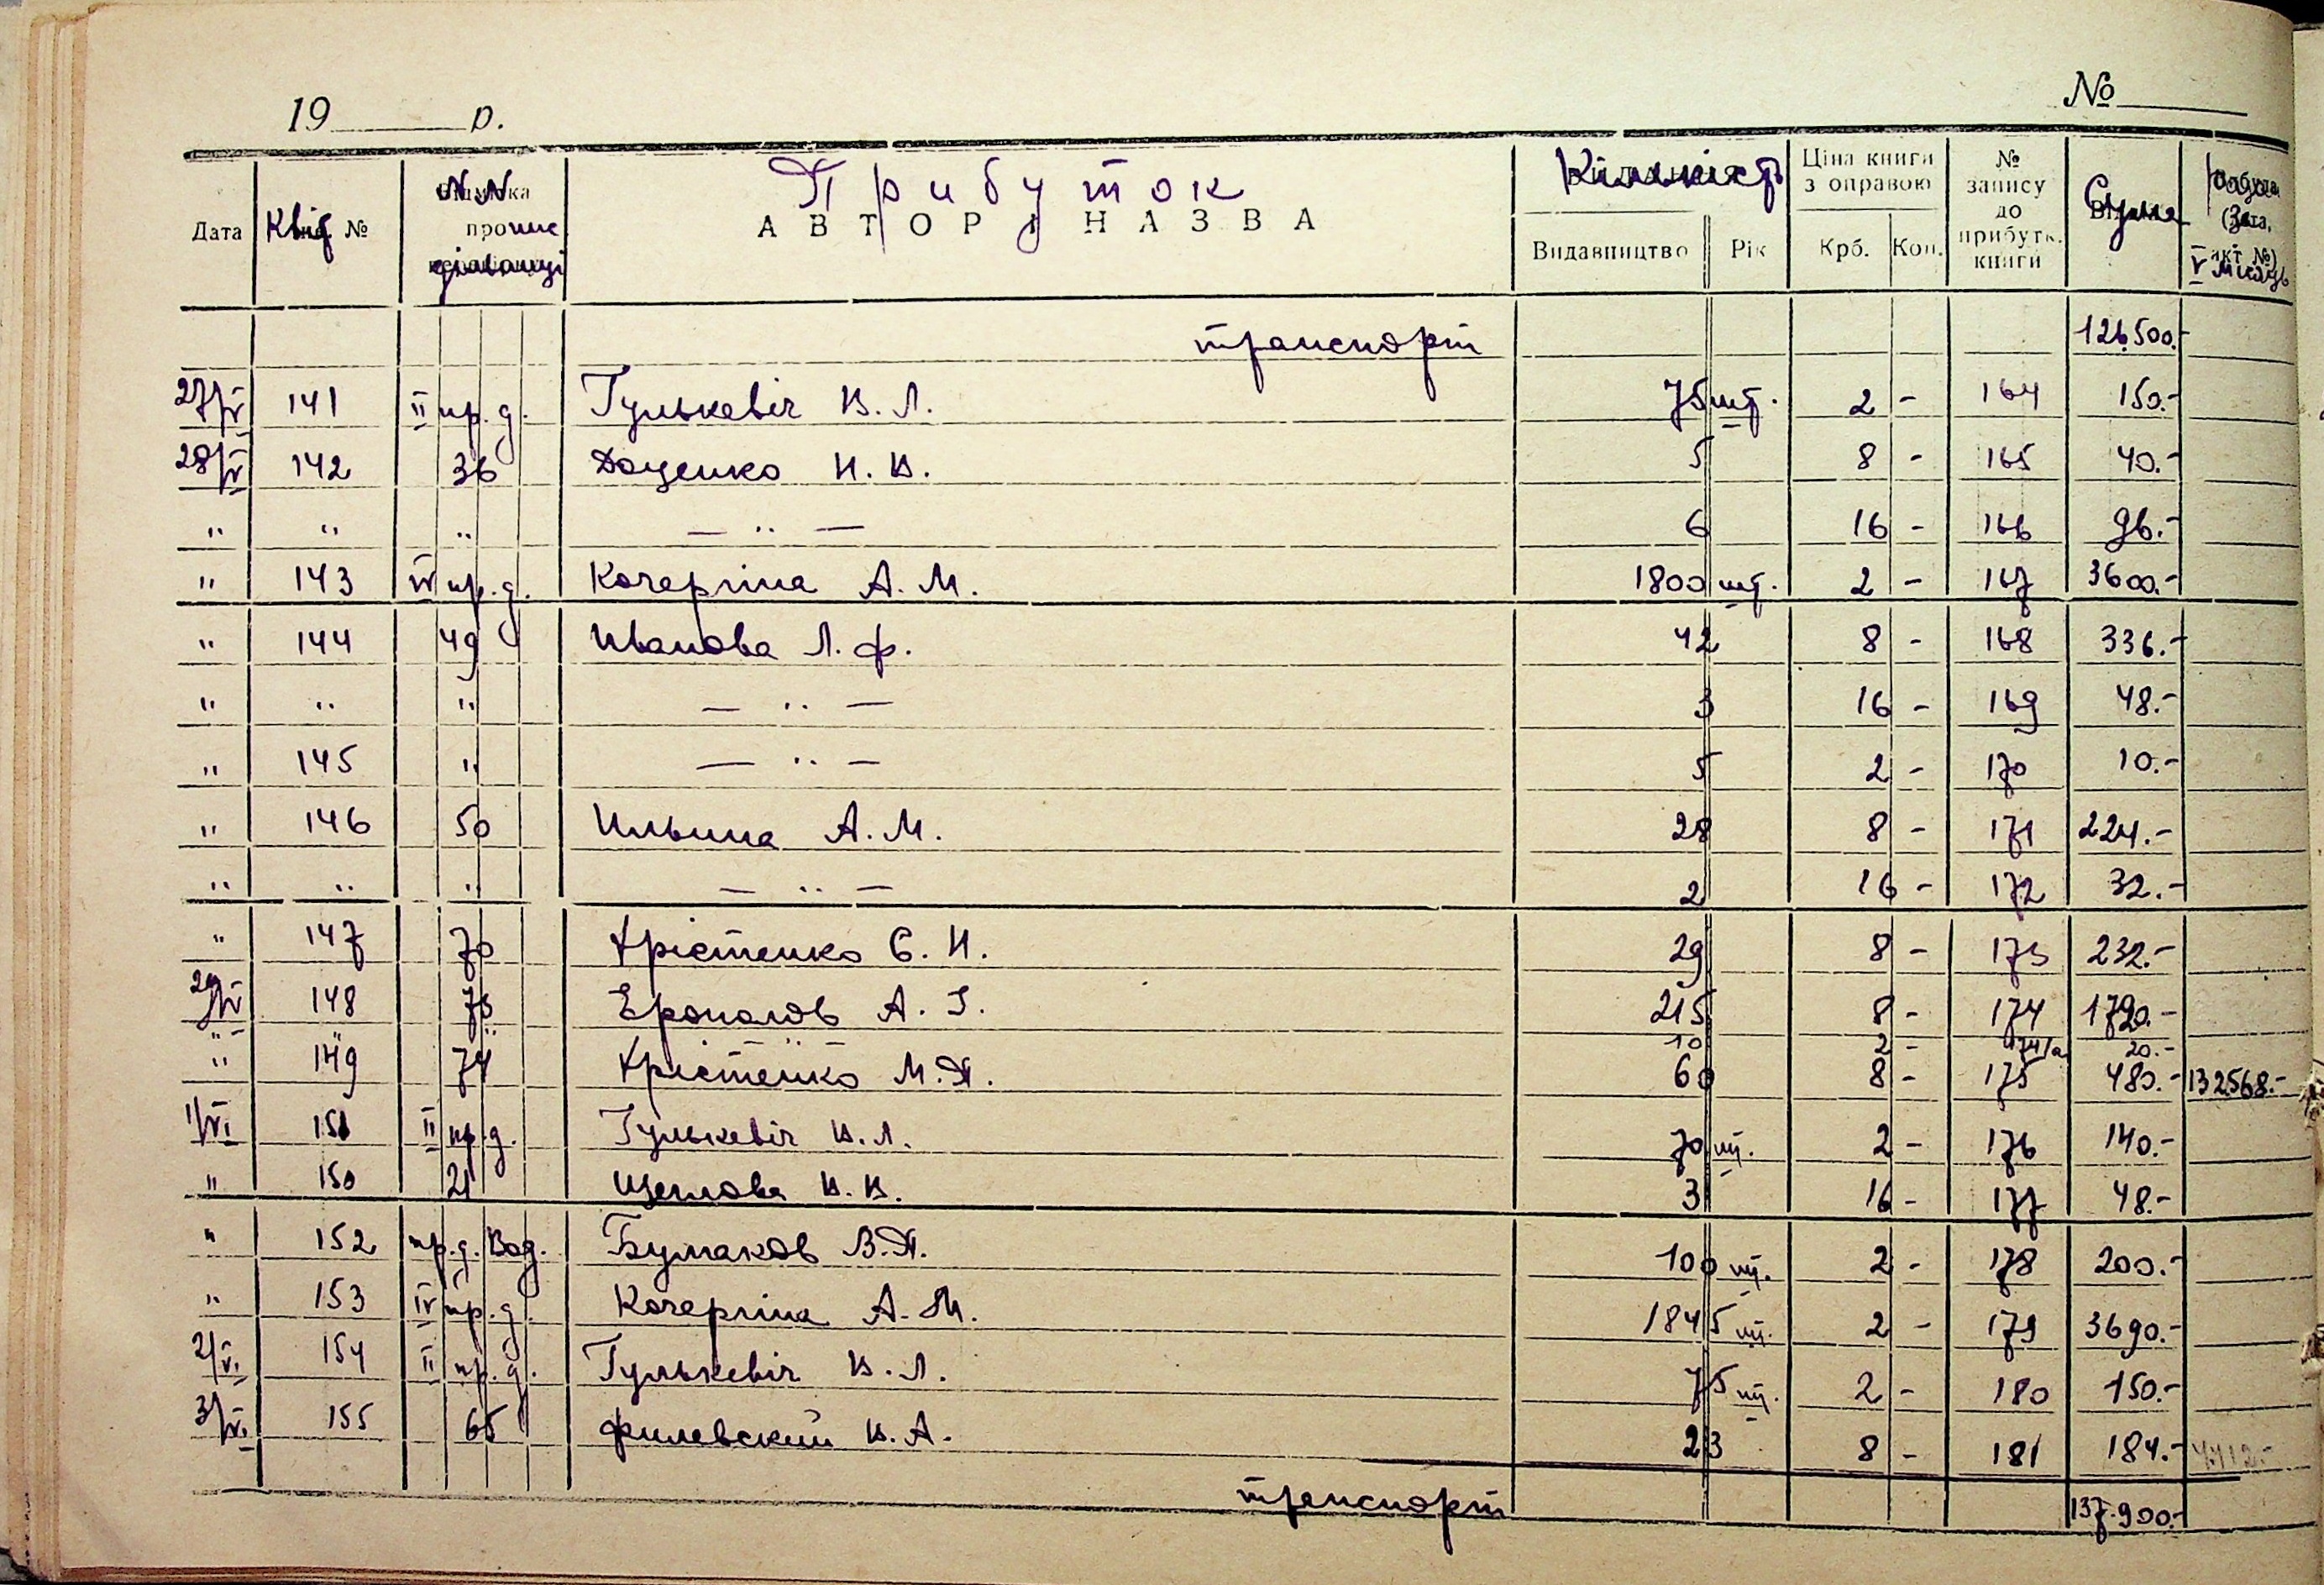 19 р. №
Дата Квід № N N прописдільниці Прибуток Кількість Ціна книги з оправою № запису до прибутк. книги Сума за V місяць
АВТОР І НАЗВА
Видавництво Рік Крб. Коп.
транспорт 126.500.-
27/V 141 II пр. д. Гулькевіч В. Л. 75 шт. 2 - 164 150.-
28/V 142 36 Доценко Н. В. 5 8 - 165 40.-
" " " — " — 6 16 - 166 96.-
" 143 IV пр. д. Кочергіна А. М. 1800 шт. 2 - 167 3600.-
" 144 49 Иванова Л. Ф. 42 8 - 168 336.-
" " " — " — 3 16 - 169 48.-
" 145 " — " — 5 2 - 170 10.-
" 146 50 Ильина А. М. 28 8 - 171 224.-
" " " — " — 2 16 - 172 32.-
" 147 70 Хрістенко Є. И. 29 8 - 173 232.-
29/V 148 73 Еропалов А. І. 215 8 - 174 1720.-
" " " — " — 10 2 - 174/а 20.-
" 149 74 Хрістенко М. П. 60 8 - 175 480.- 132568.-
1/VI 151 II пр. д. Гулькевіч В. Л. 70 шт. 2 - 176 140.-
" 150 21 Щеглова В. В. 3 16 - 177 48.-
" 152 пр. д. Вод. Бумаков В. П. 100 шт. 2 - 178 200.-
" 153 IV пр. д. Кочергіна А. М. 1845 шт. 2 - 179 3690.-
2/VI 154 II пр. д. Гулькевіч В. Л. 75 шт. 2 - 180 150.-
3/VI 155 65 Филевский В. А. 23 8 - 181 184.- 4412.-
транспорт 137.900.-